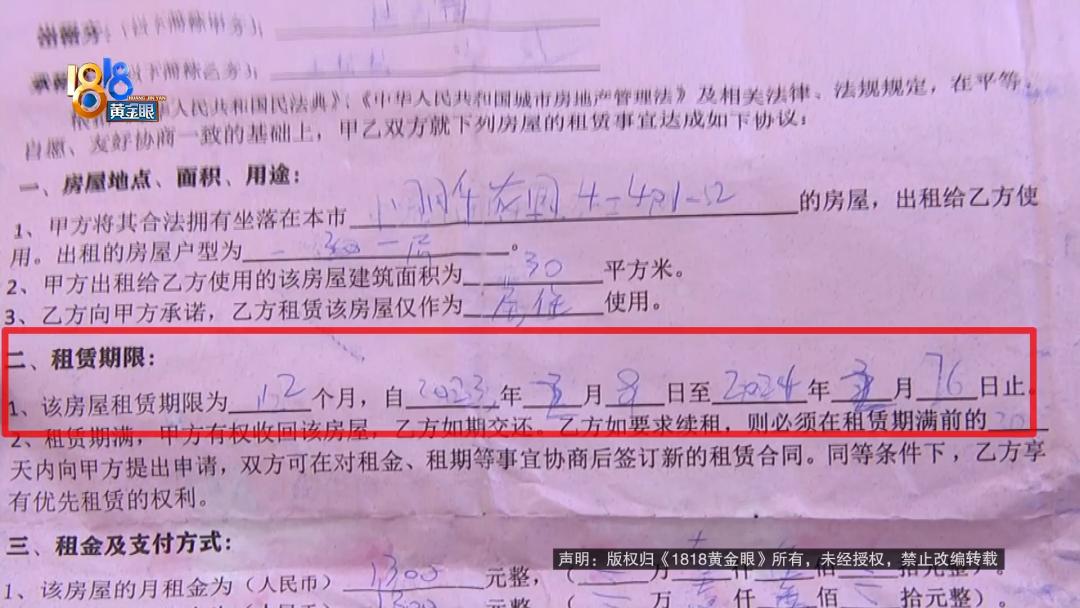 1818
HUANG JIN YAN
黄金眼
出租方：（以下简称甲方）：
（以下简称乙方）：
人民共和国民法典》、《中华人民共和国城市房地产管理法》及相关法律、法规规定，在平等、
自愿、友好协商一致的基础上，甲乙双方就下列房屋的租赁事宜达成如下协议：
一、房屋地点、面积、用途：
1、甲方将其合法拥有坐落在本市 的房屋，出租给乙方使
用。出租的房屋户型为 。
2、甲方出租给乙方使用的该房屋建筑面积为 30 平方米。
3、乙方向甲方承诺，乙方租赁该房屋仅作为 居住 使用。
二、租赁期限：
1、该房屋租赁期限为 12 个月，自 2023 年 月 8 日至 2024 年 月 日止。
2、租赁期满，甲方有权收回该房屋，乙方如期交还。乙方如要求续租，则必须在租赁期满前的
天内向甲方提出申请，双方可在对租金、租期等事宜协商后签订新的租赁合同。同等条件下，乙方享
有优先租赁的权利。
三、租金及支付方式：
1、该房屋的月租金为（人民币） 1300 元整，（ 万 仟 佰 拾元整）。
声明：版权归《1818黄金眼》所有，未经授权，禁止改编转载
万 仟 佰 拾元整）。